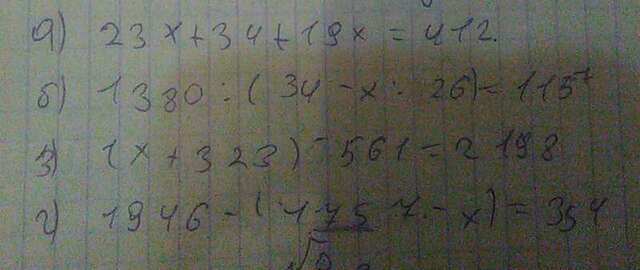 а) 23x+34+19x=412.
б) 1380:(34-x:26)=115
з) (x+323)-561=2198
г) 1946-( -x)=354